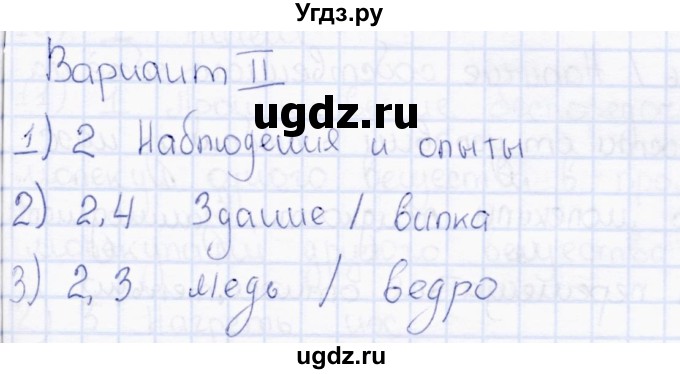 Угдз.ру
Вариант II
ugdz.ru
1) 2 Наблюдения и опыты
2) 2,4 Здание / вилка
3) 2,3 медь / ведро
ugdz.ru